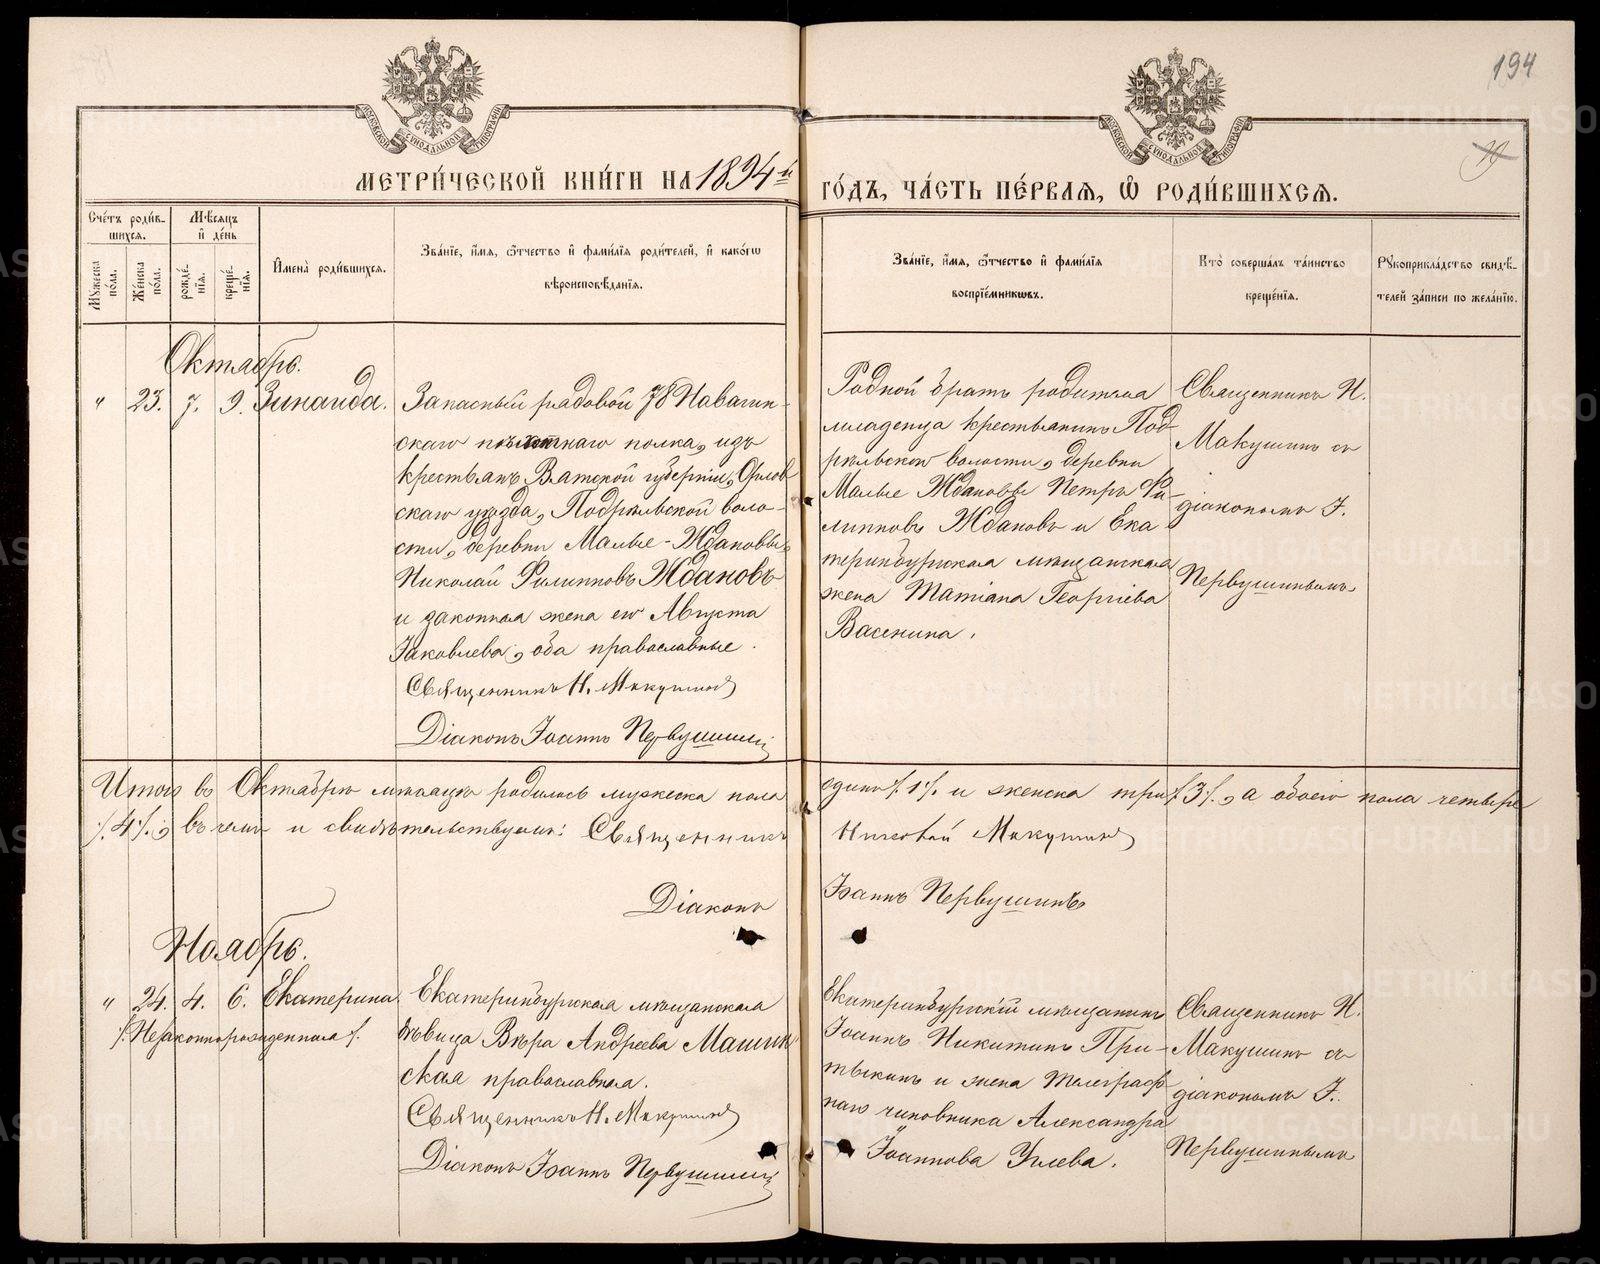 194
19
МОСКОВСКОЙ СѴНОДАЛЬНОЙ ТИПОГРАФІИ
МОСКОВСКОЙ СѴНОДАЛЬНОЙ ТИПОГРАФІИ
МЕТРИ́ЧЕСКОЙ КНИ́ГИ НА 1894й
ГО́ДЪ, ЧА́СТЬ ПЕ́РВАЯ, Ѿ РОДИ́ВШИХСЯ.
Сче́тъ роди́в-
шихся.
Мꙋжеска по́ла.
Же́нска по́ла.
Мѣ́сяцъ и҆ де́нь
рожде́нїя.
креще́нїя.
И҆мена̀ роди́вшихся.
Зва́нїе, и҆́мя, ѻ҆́тчество и҆ фами́лїя роди́телей, и҆ како́гѡ
вѣроисповѣ́данїя.
Зва́нїе, и҆́мя, ѻ҆́тчество и҆ фами́лїя
воспрїе́мникѡвъ.
Кто̀ соверша́лъ та́инство
креще́нїя.
Рꙋкоприкла́дство свидѣ́-
телей за́писи по жела́нїю.
Октябрь.
" 23. 7. 9. Зинаида.
Запасный рядовой 78 Навагин-
скаго пѣхотнаго полка, изъ
крестьянъ Вятской губерніи, Орлов
скаго уѣзда, Подрѣльской воло-
сти, деревни Малые-Ждановы,
Николай Филипповъ Ждановъ
и законная жена его Августа
Яковлева, оба православные.
Священникъ Н. Макушинъ
Діаконъ Іоаннъ Первушинъ
Родной братъ родителя
младенца крестьянинъ Под-
рѣльской волости, деревни
Малые Ждановы Петръ Фи-
липповъ Ждановъ и Ека
теринбургская мѣщанская
жена Татіана Георгіева
Васенина.
Священникъ Н.
Макушинъ съ
діакономъ І.
Первушинымъ
Итого въ Октябрѣ мѣсяцѣ родилось мужеска пола
одинъ /.1/. и женска три /.3/., а обоего пола четыре
/.4/., въ чемъ и свидѣтельствуемъ: Священникъ
Николай Макушинъ
Діаконъ
Іоаннъ Первушинъ
Ноябрь.
" 24. 4. 6. Екатерина
/.Незаконнорожденная/.
Екатеринбургская мѣщанская
дѣвица Вѣра Андреева Машин
ская православная.
Священникъ Н. Макушинъ
Діаконъ Іоаннъ Первушинъ
Екатеринбургскій мѣщанинъ
Іоаннъ Никитинъ При-
тыкинъ и жена телеграф-
наго чиновника Александра
Іоаннова Углева.
Священникъ Н.
Макушинъ съ
діакономъ І.
Первушинымъ
METRIKI.GASO-URAL.RU